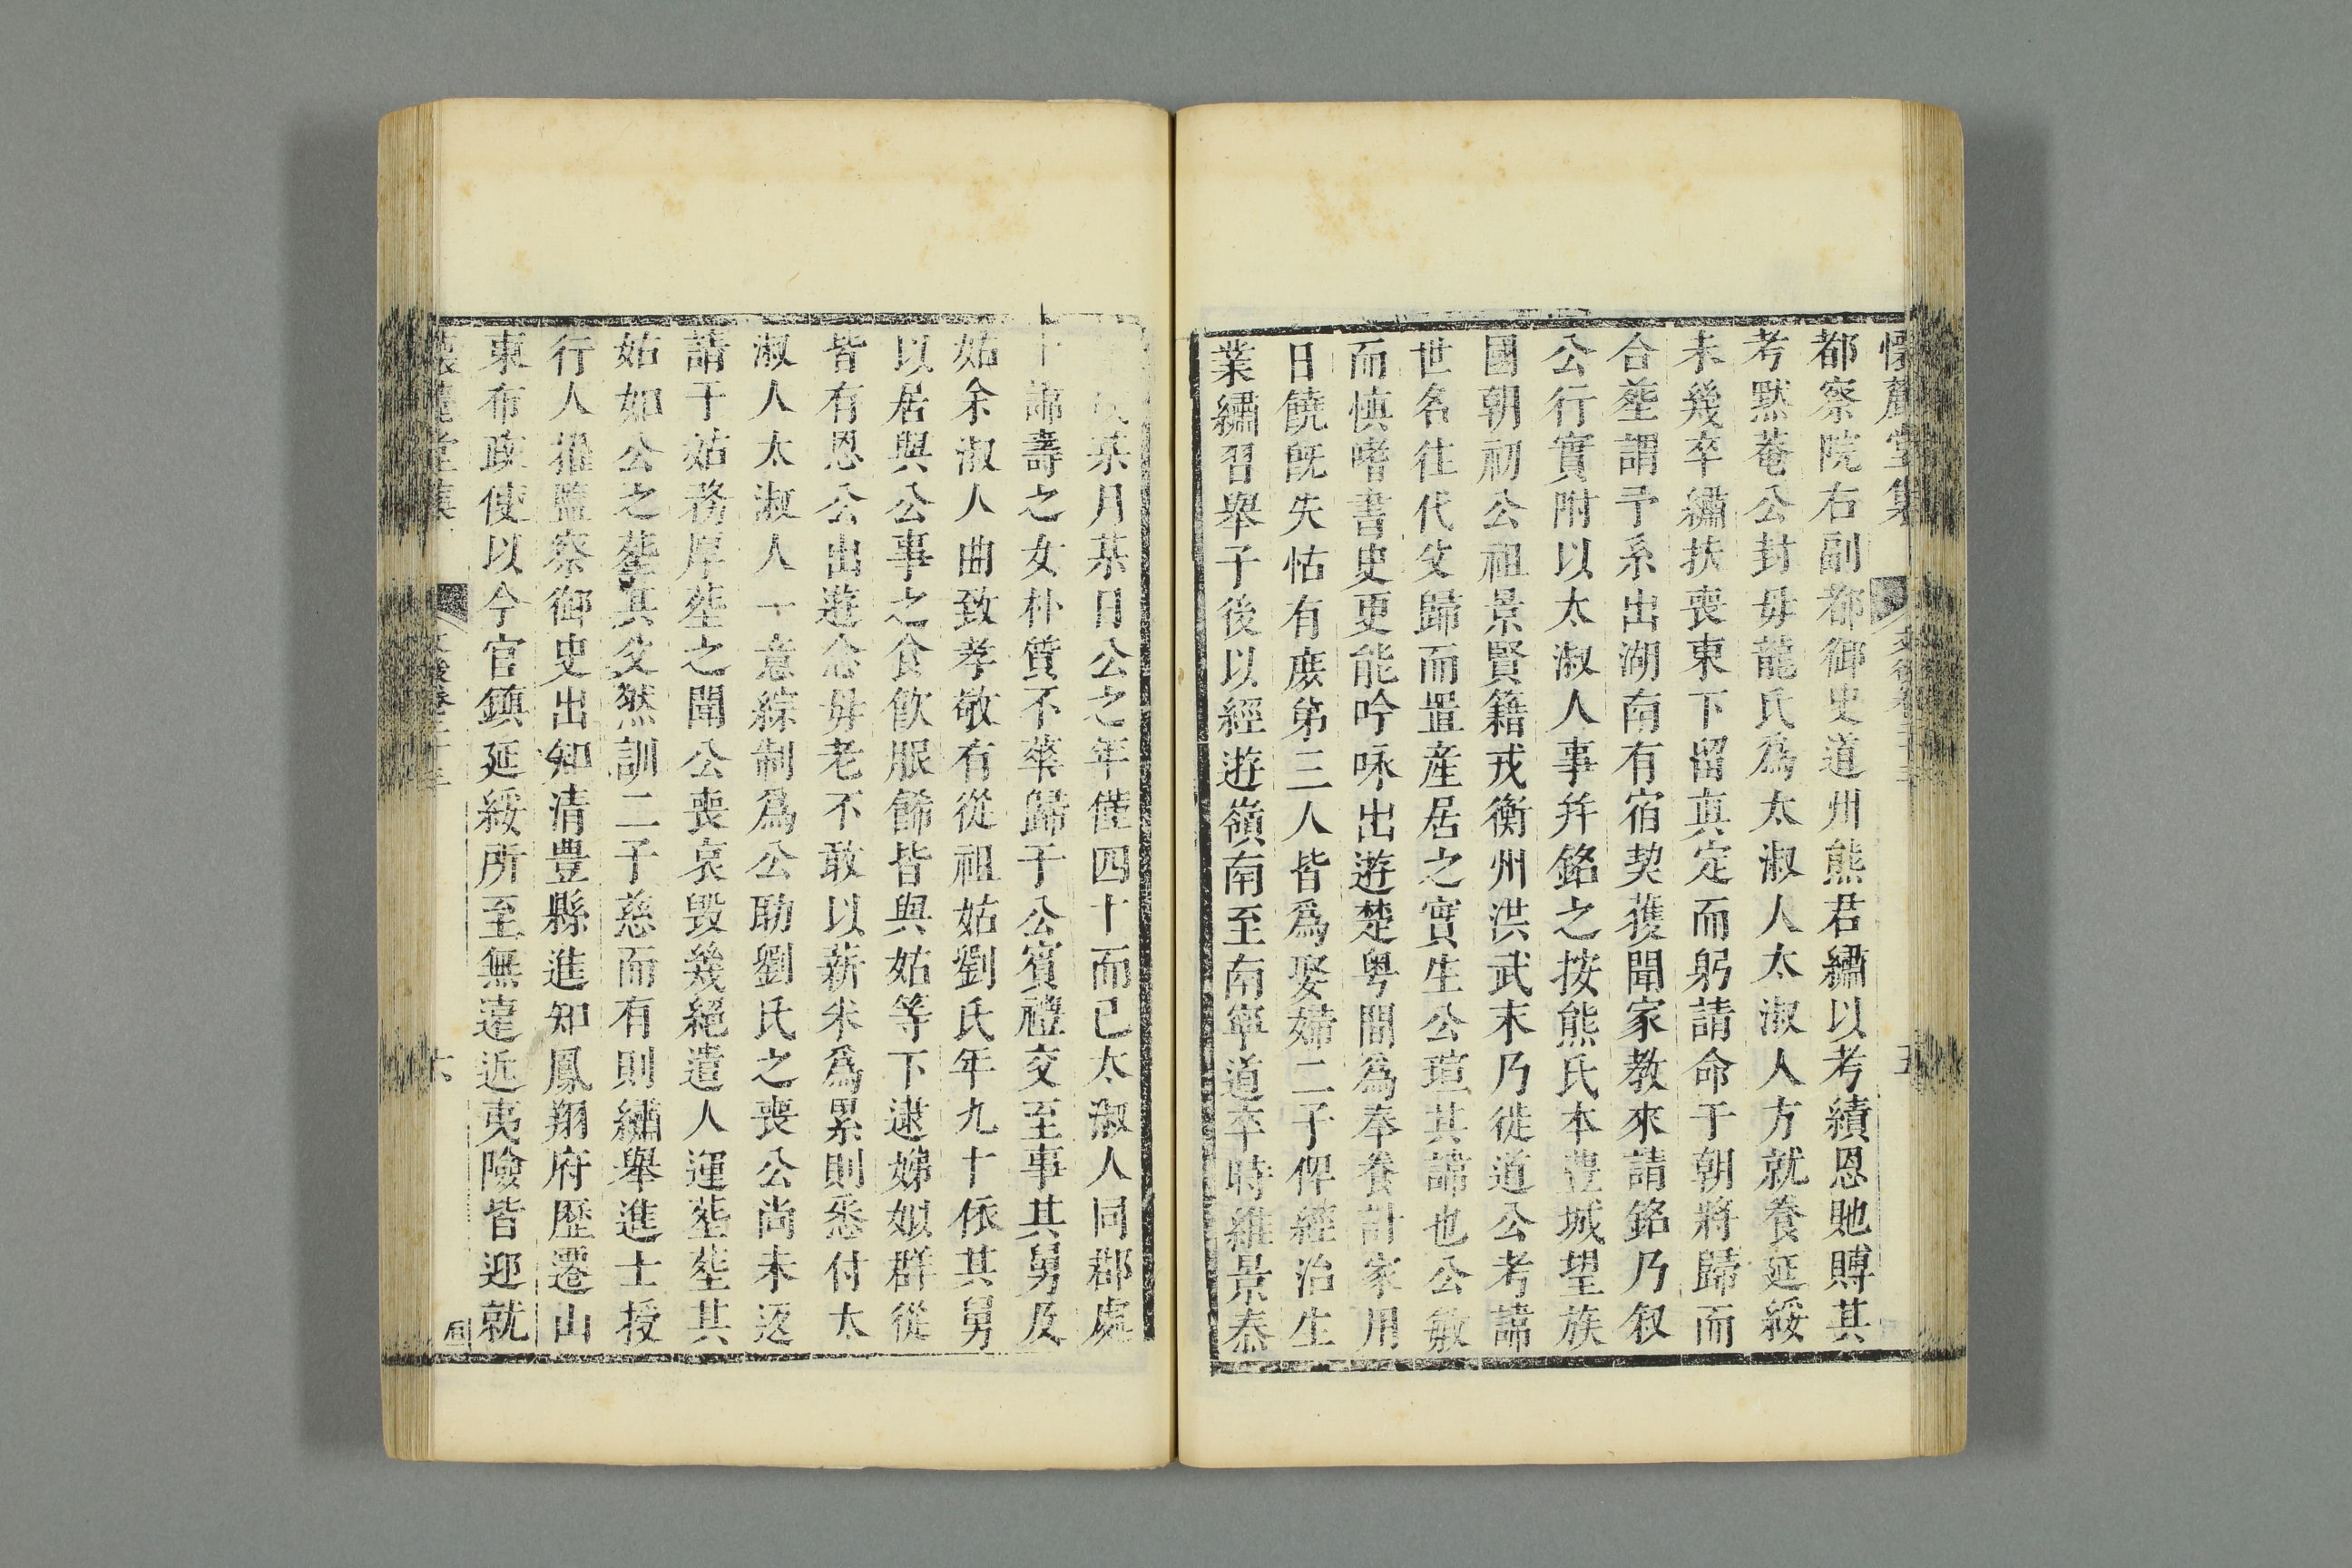 懷麓堂集 文後卷二十五 五
都察院右副都御史道州熊君繡以考績恩貤贈其
考默菴公封毋龍氏為太淑人太淑人方就養延綏
未幾卒繡扶喪東下留真定而躬請命于朝將歸而
合塟謂予系出湖南有宿契獲聞家教來請銘乃叙
公行實附以太淑人事并銘之按熊氏本豊城望族
國朝初公祖景賢籍戎衡州洪武末乃徙道公考諱
世名往代父歸而置産居之實生公瑄其諱也公敏
而慎嗜書史更能吟咏出遊楚粤間為奉養計家用
日饒既失怙有庶弟三人皆為娶婦二子俾經治生
業繡習舉子後以經遊嶺南至南寧道卒時維景泰
某月某日公之年僅四十而已太淑人同郡處
士諱壽之女朴質不華歸于公賓禮交至事其舅及
姑余淑人曲致孝敬有從祖姑劉氏年九十依其舅
以居與公事之食飲服飾皆與姑等下逮娣姒群從
皆有恩公出遊念毋老不敢以薪米為累則悉付太
淑人太淑人一意綜制為公助劉氏之喪公尚未返
請于姑務厚塟之聞公喪哀毀幾絕遣人運塟塟其
姑如公之塟其父然訓二子慈而有則繡舉進士授
行人擢監察御史出知清豊縣進知鳳翔府歷遷山
東布政使以今官鎮延綏所至無遠近夷險皆迎就
懷麓堂集 文後卷二十五 六